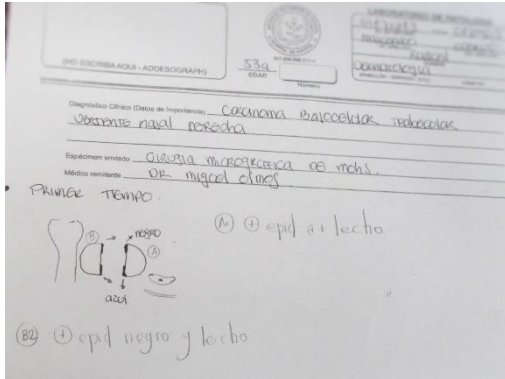 LABORATORIO DE PATOLOGIA
(NO ESCRIBA AQUI - ADDESOGRAPH)
53a
EDAD
Número
Dermatología
Diagnóstico Clínico (Datos de Importancia) Carcinoma Basocelular
vertiente nasal derecha
Espécimen enviado Cirugía micrográfica de mohs.
Médico remitente DR miguel olmos
• PRIMER TIEMPO.
B negro A
azul
A1 + epid a + lecho
B2 + epid negro y lecho